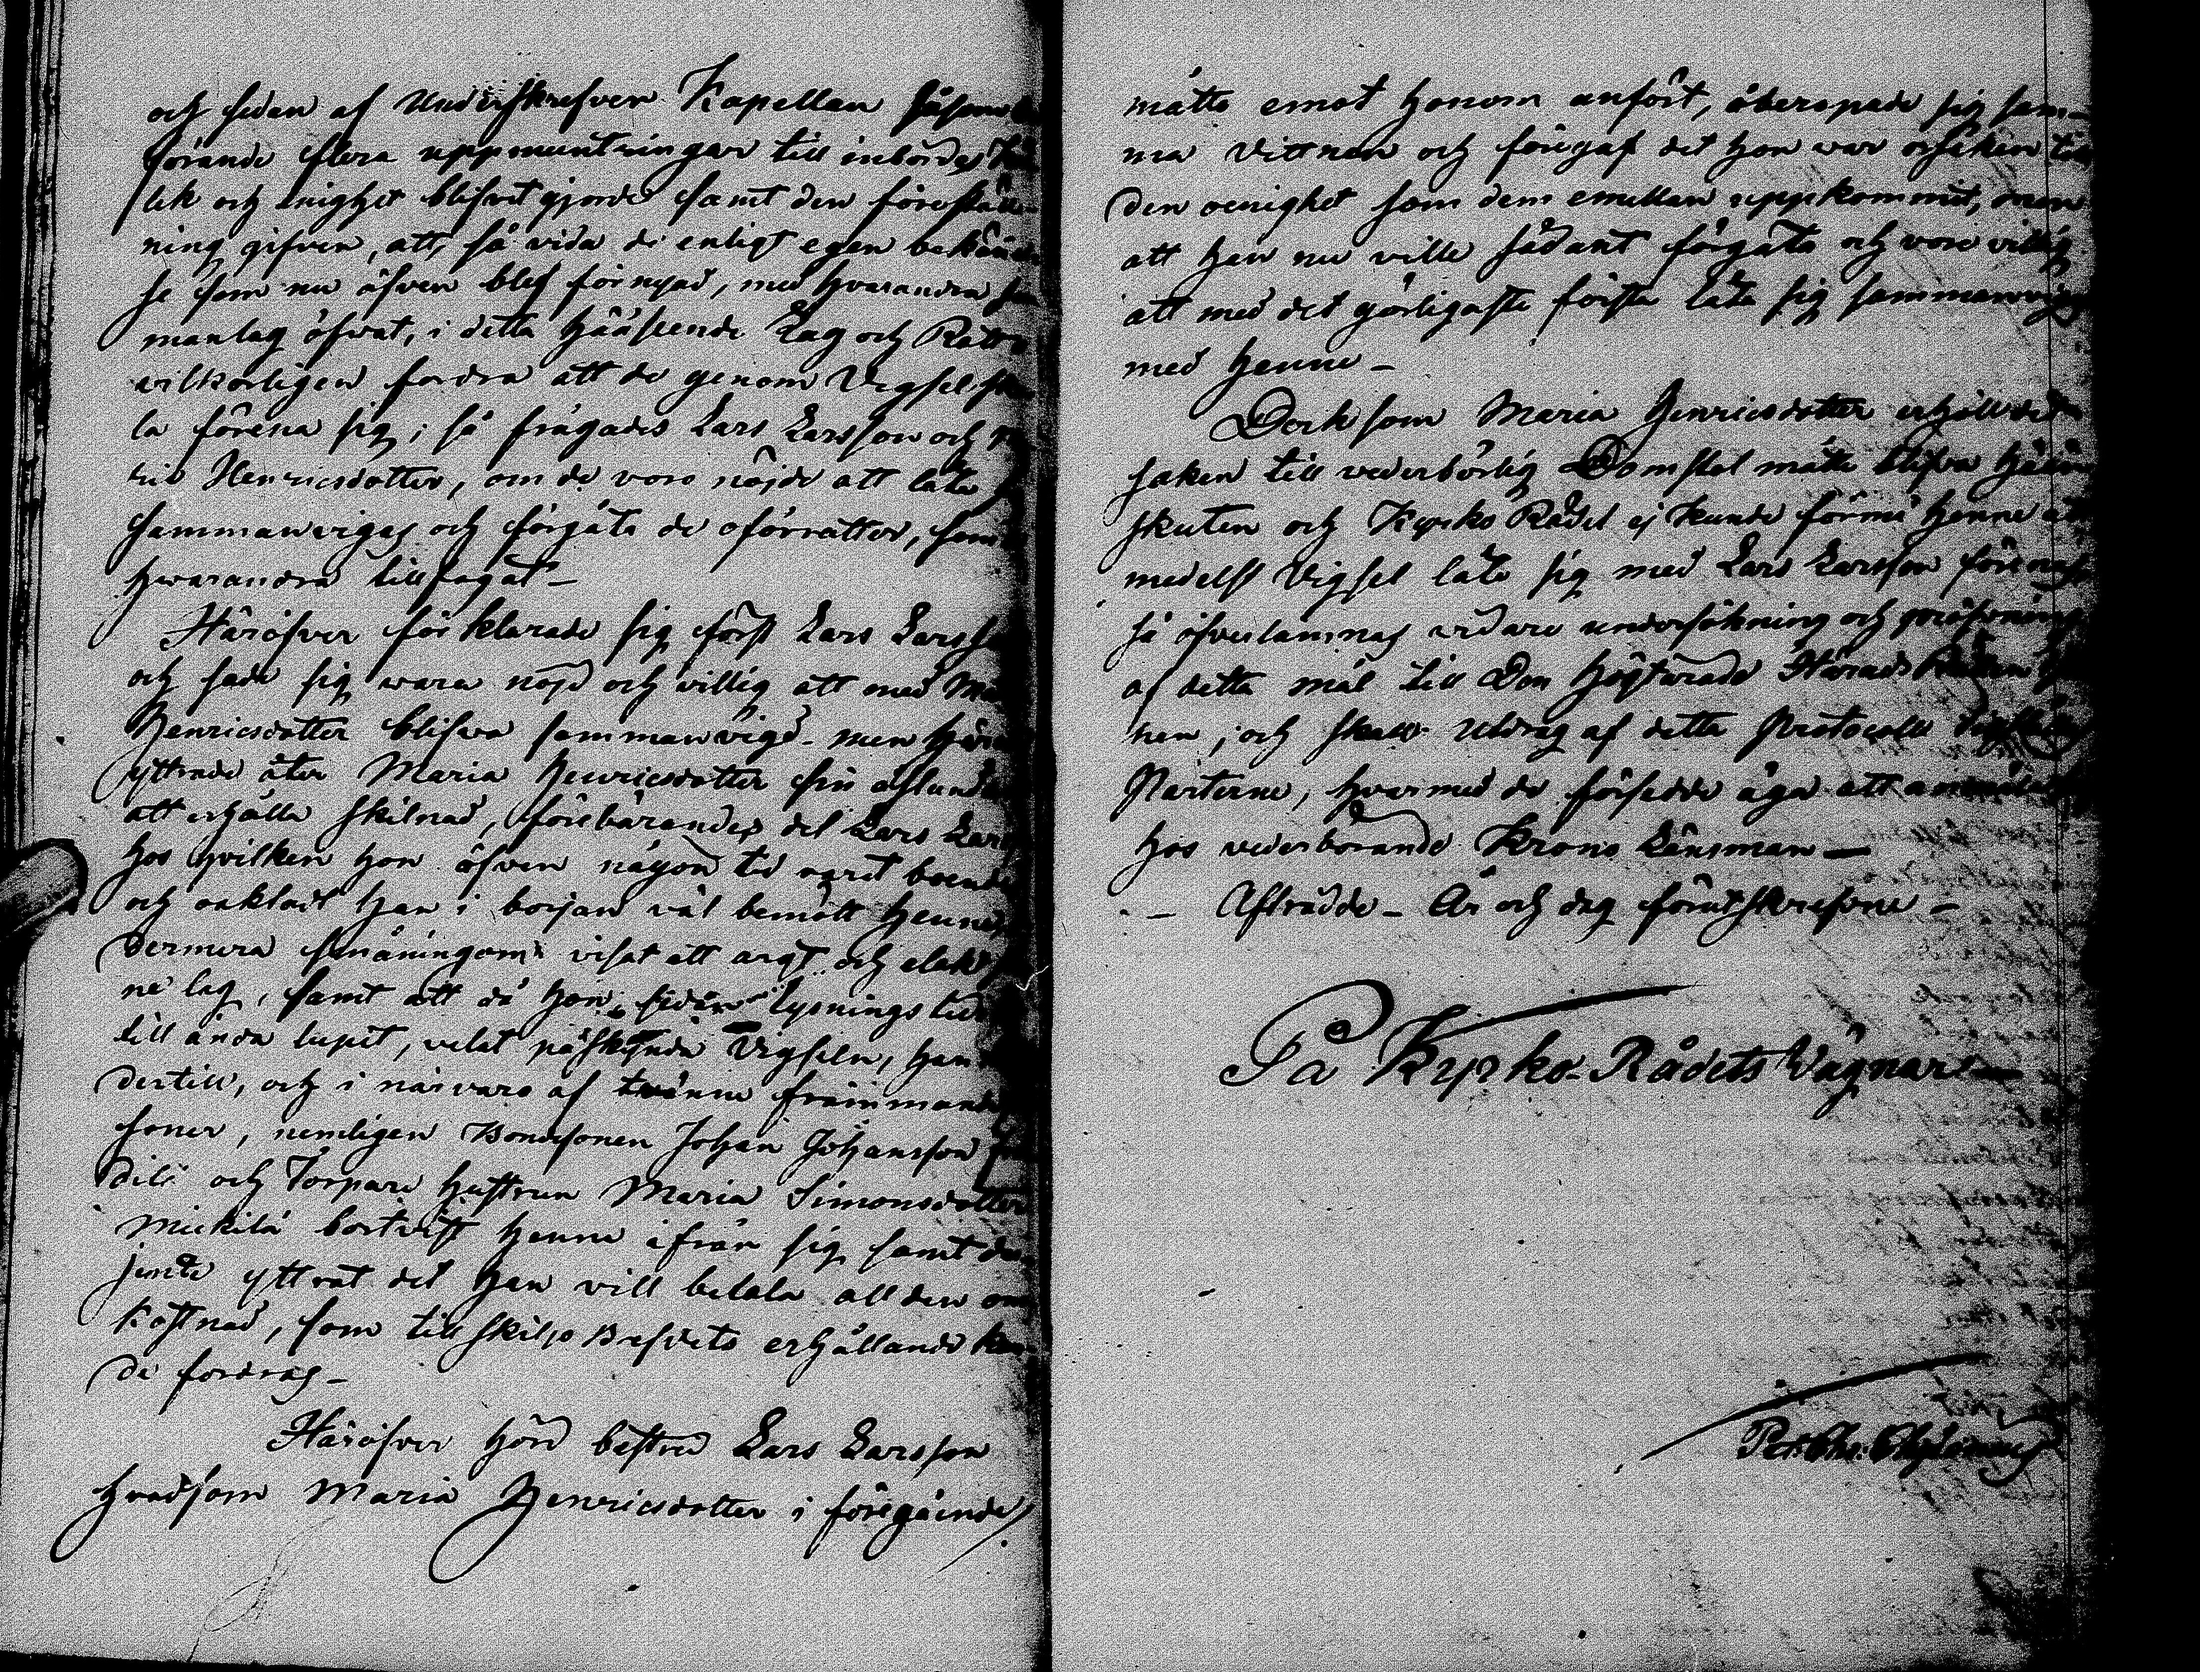 och sedan af Underskrefven Kapellan såsom
förande flera uppmuntringar till inbördes
lek och enighet blifvit gjorde samt den föreställ-
ning gifven, att, så vida de enligt egen bekännel
se som nu äfven blef förnyad, med hvarandra
manlag öfvat, i detta hänseende Lag och Rätt
vilkorligen fordra att de genom Vigsel skul
la förena sig; så frågades Lars Larsson och Ma
ria Henricsdotter, om de voro nöjde att låta
sammanvigas och förgäta de oförrätter, som
hwarandra tillfogat -
Häröfver förklarade sig först Lars Larsson
och sade sig wara nöjd och villig att med Ma
Henricsdotter blifva sammanvigd - men
yttrade åter Maria Henricsdotter sin åstundan
att erhålla skilnad, förebärandes det Lars Lars
hos hvilken hon äfven någon tid varit boende
och oaktadt han i början väl bemött henne,
dermera småningom visat ett argt och elakt
ne lag, samt att då hon, sedan lysningstiden
till ända lupit, velat påskynda Vigseln, han
dertill, och i närvaro af tvänne främmande
soner, nemligen Bondesonen Johan Johansson
dila och Torpare hustrun Maria Simonsdotter
Mickilä bortvist henne ifrån sig samt der
jemte yttrat det han vill betala all den om
kostnad, som till skiljo Brefvets erhållande kun
de fordras -
Häröfver hörd bestred Lars Larsson
hvadsom Maria Henricsdotter i föregående
måtto emot honom anfört, åberopade sig sam-
ma Vittnen och föregaf det hon war orsaken till
den oenighet som dem emellan uppkommit, men
att han nu ville sådant förgäta och vore villig
att med det görligaste första låta sig sammanviga
med henne -
Dock som Maria Henricsdotter erhöll det
saken till vederbörlig Domstol måtte blifva hän
skuten och Kyrko Rådet ej kunde förmå henne att
medelst Vigsel låta sig med Lars Larsson förenas
så öfverlämnas vidare undersökning och pröfning
af detta mål till Den Högtärade Härads Rätten
nen; och skall Utdrag af detta Protocoll
Parterne, hvarmed de försedde äga att anmäla
hos vederbörande Krono Länsman —
— Afträdde - År och dag förutskrefne -
På Kyrko-Rådets Vägnar —